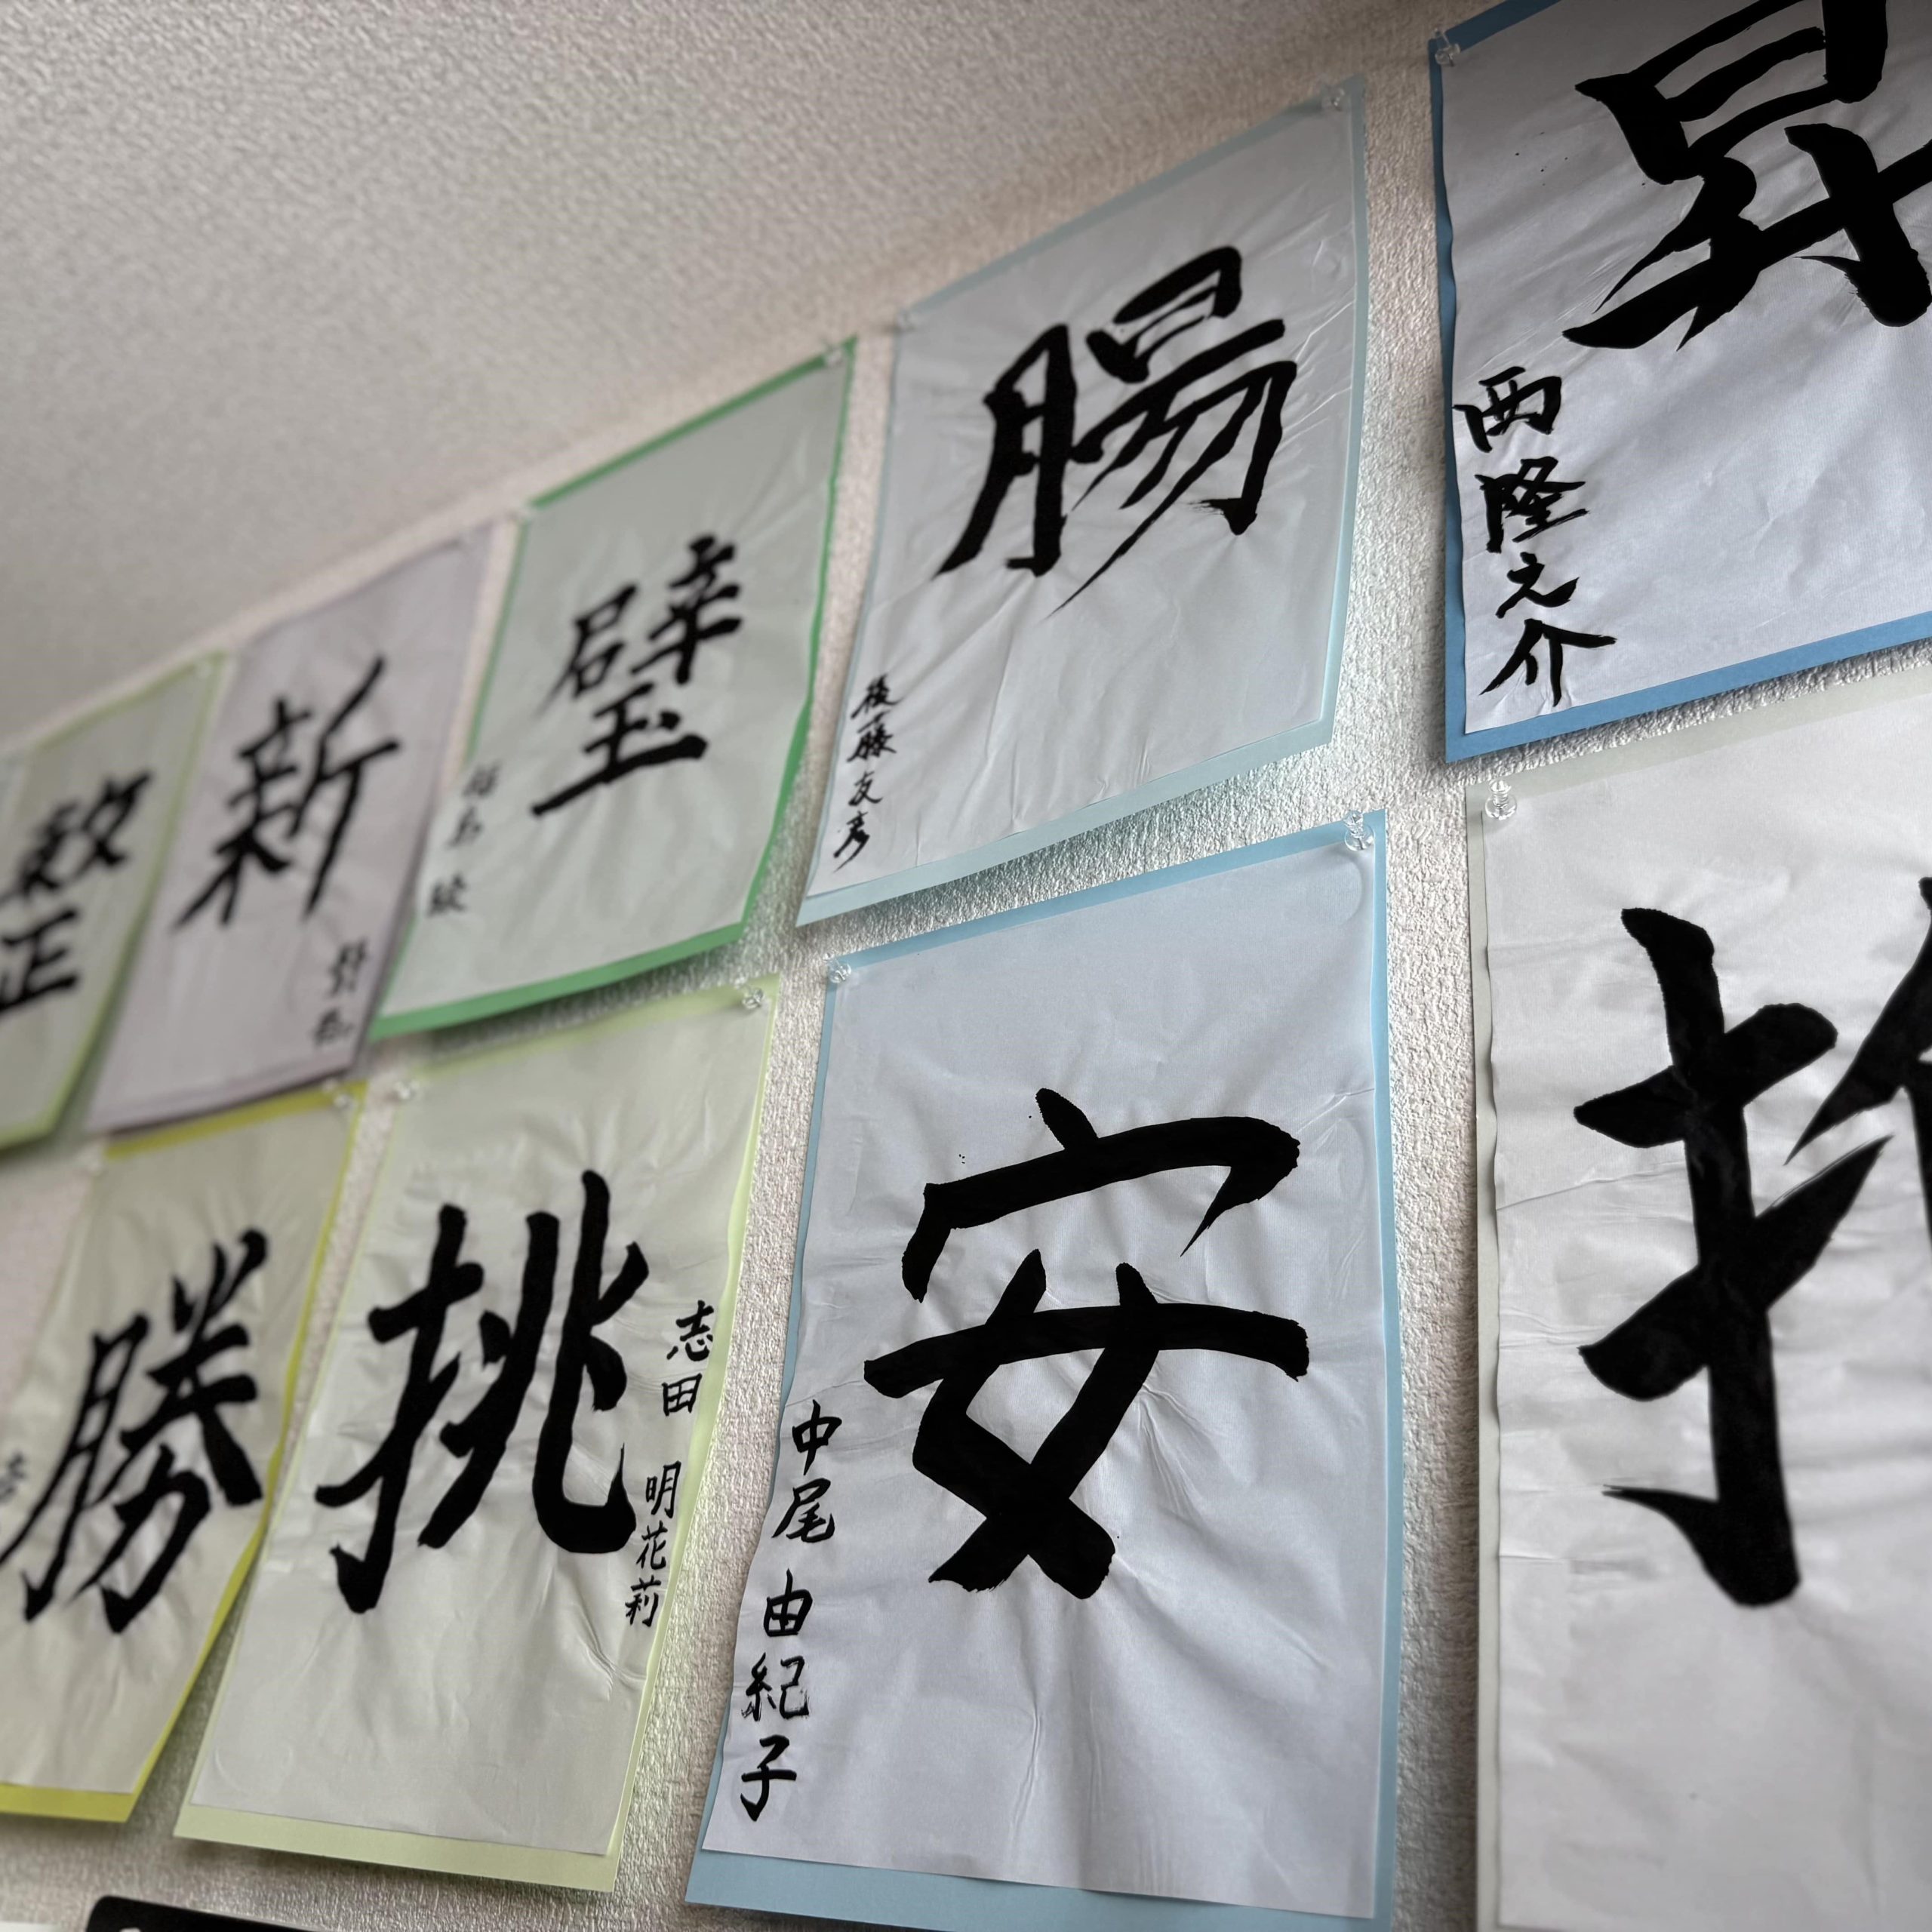 整
新
璧
腸
後藤友彦
昇
西隆之介
勝
挑
志田 明花莉
安
中尾 由紀子